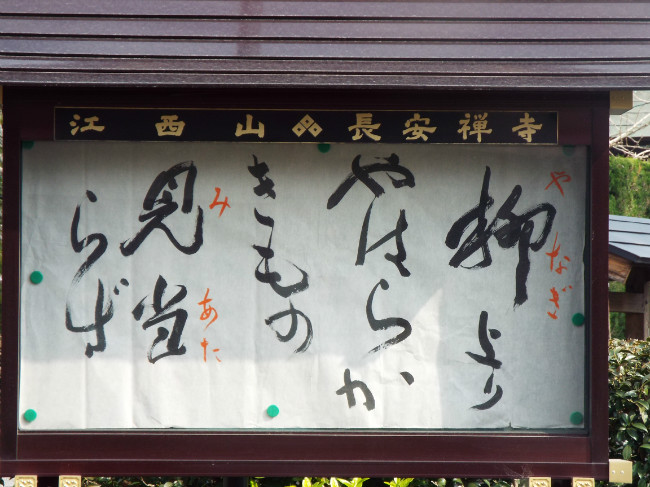 江西山 長安禅寺
柳より
やなぎ
やはらか
きもの
見当
みあた
らず